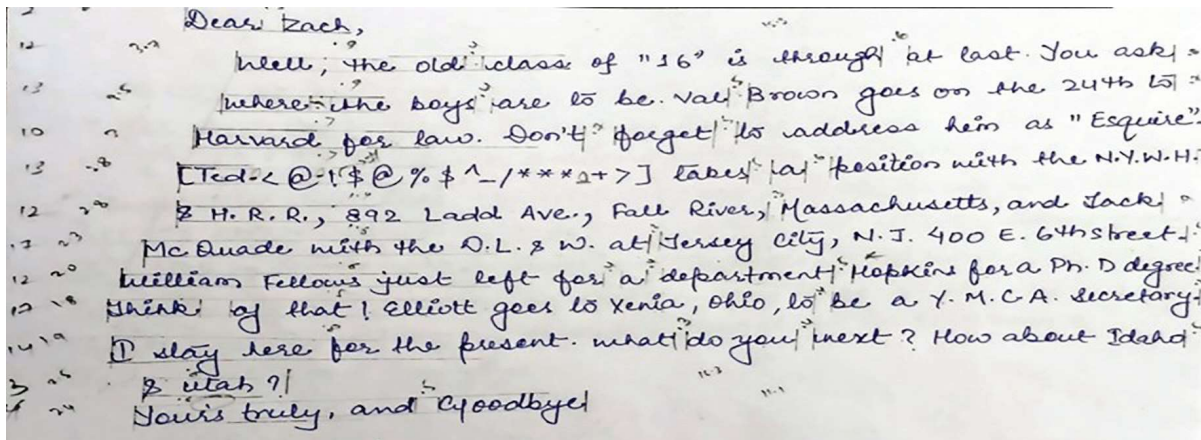 Dear Zach,
Well, the old class of "16" is through at last. You ask
where the boys are to be. Val Brown goes on the 24th to
Harvard for law. Don't forget to address him as "Esquire".
[Ted.< @-!$@%$^_/***2+>] takes a position with the N.Y.W.H.
& H.R.R., 892 Ladd Ave., Fall River, Massachusetts, and Jack
McQuade with the D.L. & W. at Jersey City, N.J. 400 E. 6th street.
William Fellows just left for a department Hopkins for a Ph.D degree.
Think of that! Elliott goes to Xenia, Ohio, to be a Y.M.C.A. Secretary.
I stay here for the present. What do you next? How about Idaho
& Utah?
Yours truly, and Goodbye